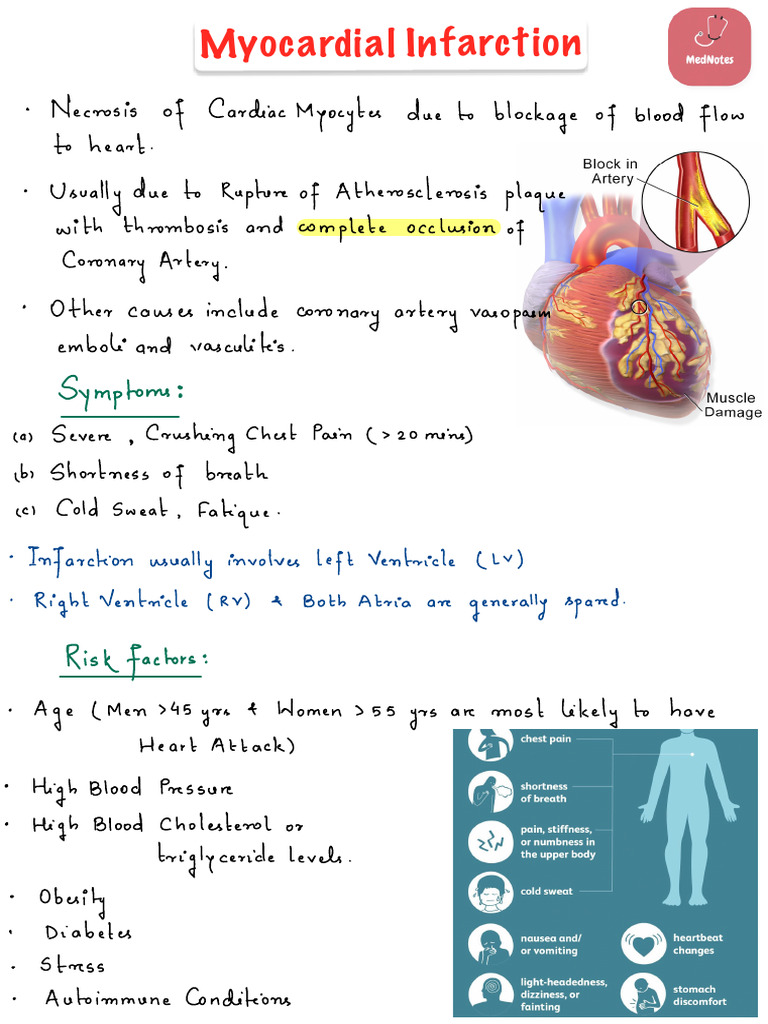 Myocardial Infarction
MedNotes
· Necrosis of Cardiac Myocytes due to blockage of blood flow
to heart.
· Usually due to Rupture of Atherosclerosis plaque
with thrombosis and complete occlusion of
Coronary Artery.
· Other causes include coronary artery vasopasm
emboli and vasculitis.
Block in
Artery
Muscle
Damage
Symptoms:
(a) Severe, Crushing Chest Pain (>20 mins)
(b) Shortness of breath
(c) Cold Sweat, Fatique.
· Infarction usually involves left Ventricle (LV)
· Right Ventricle (RV) & Both Atria are generally spared.
Risk factors:
· Age (Men >45 yrs & Women >55 yrs are most likely to have
Heart Attack)
· High Blood Pressure
· High Blood Cholesterol or
triglyceride levels.
· Obesity
· Diabetes
· Stress
· Autoimmune Conditions
chest pain
shortness
of breath
pain, stiffness,
or numbness in
the upper body
cold sweat
nausea and/
or vomiting
light-headedness,
dizziness, or
fainting
heartbeat
changes
stomach
discomfort